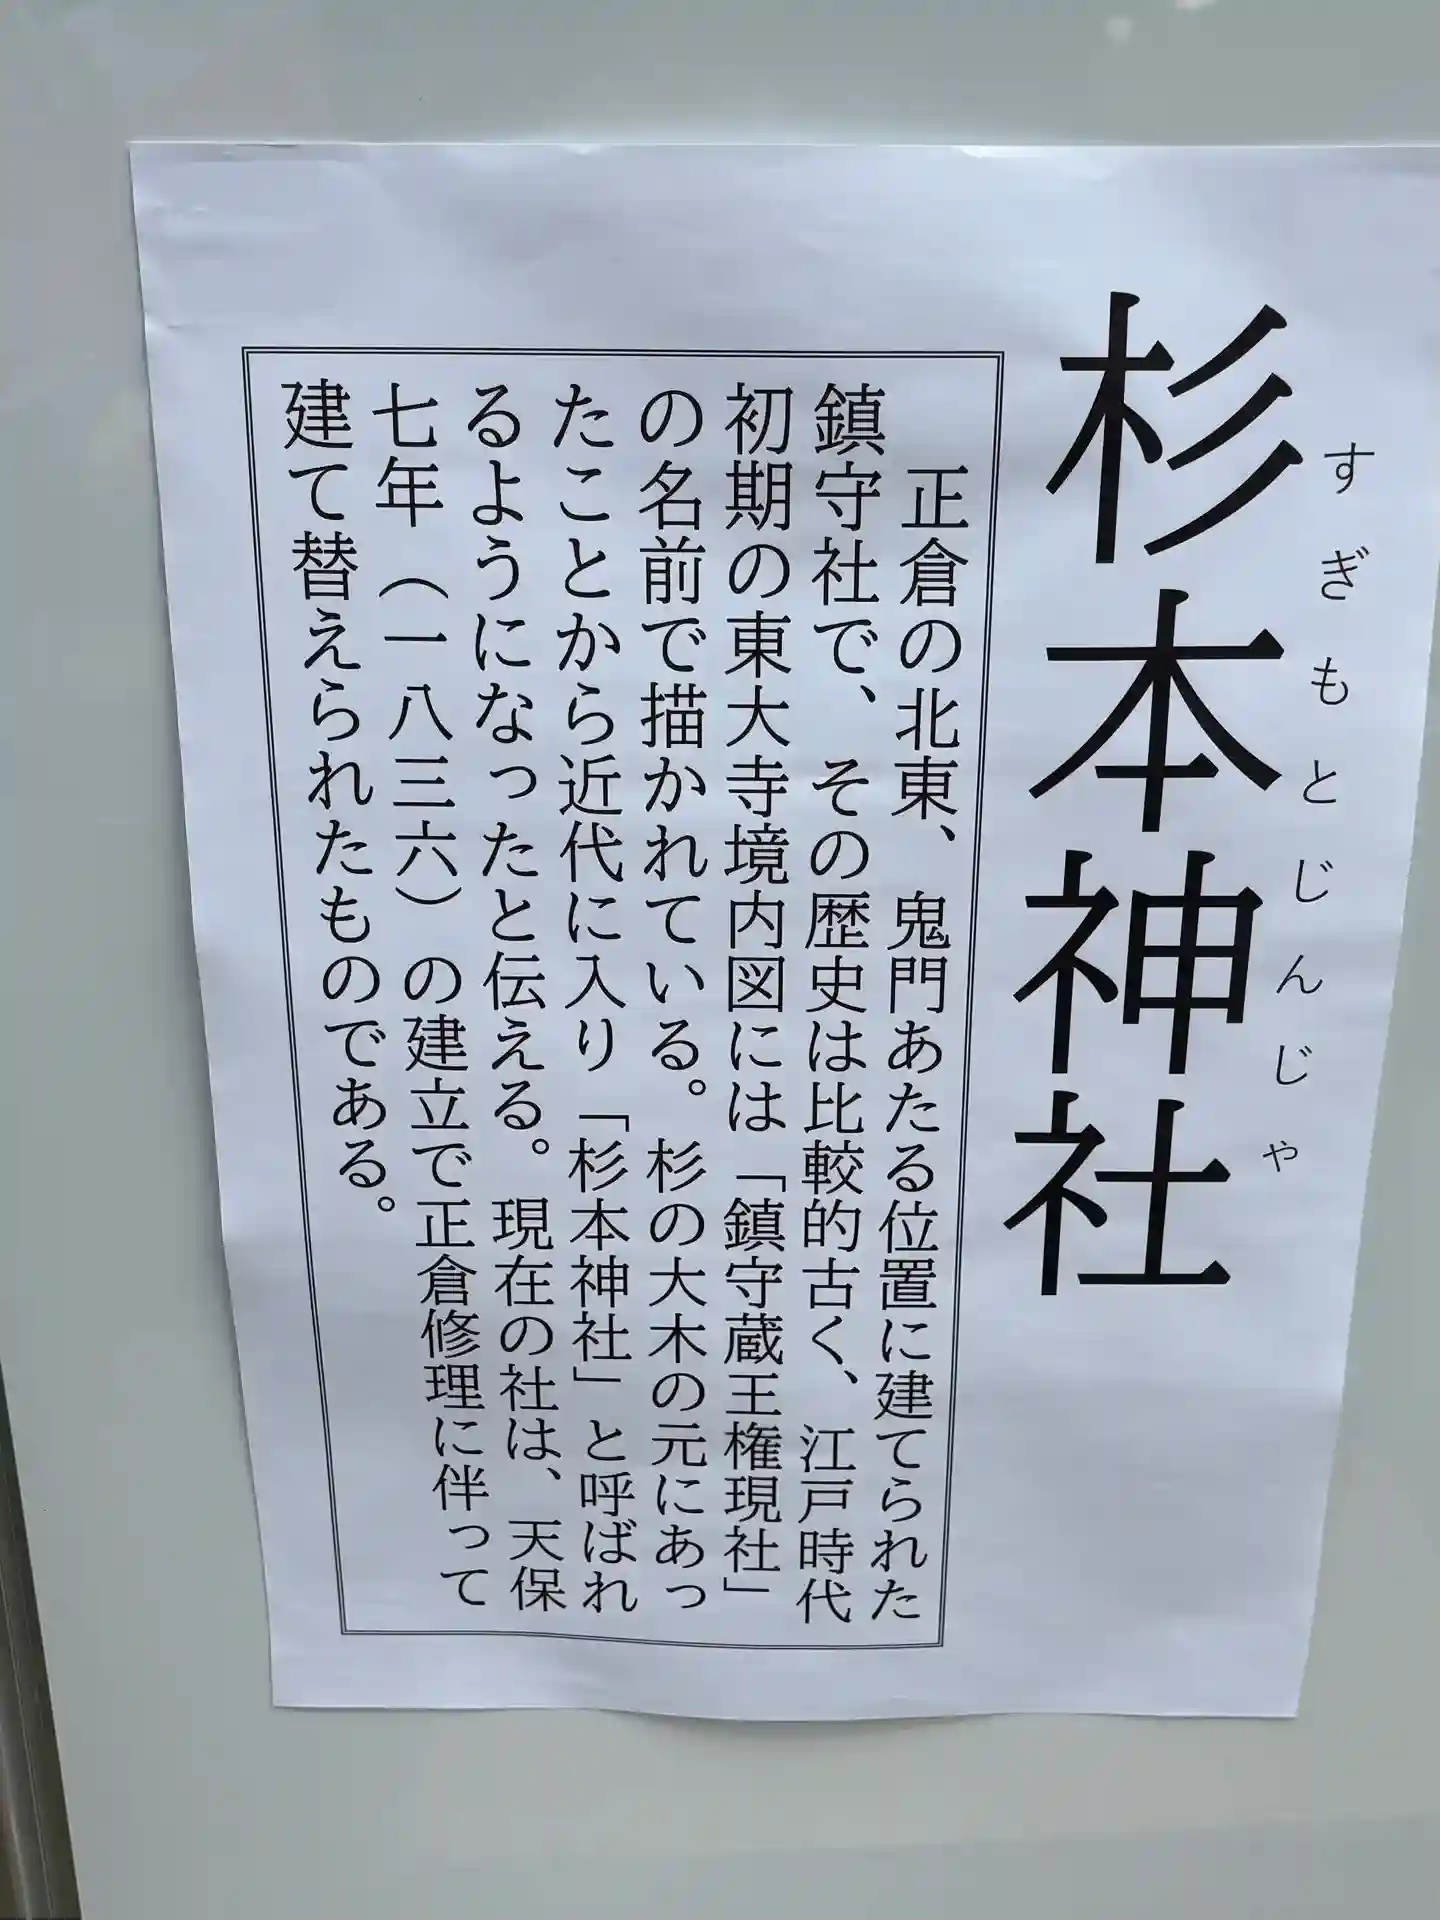 杉本神社
すぎもとじんじゃ
正倉の北東、鬼門あたる位置に建てられた
鎮守社で、その歴史は比較的古く、江戸時代
初期の東大寺境内図には「鎮守蔵王権現社」
の名前で描かれている。杉の大木の元にあっ
たことから近代に入り「杉本神社」と呼ばれ
るようになったと伝える。現在の社は、天保
七年（一八三六）の建立で正倉修理に伴って
建て替えられたものである。